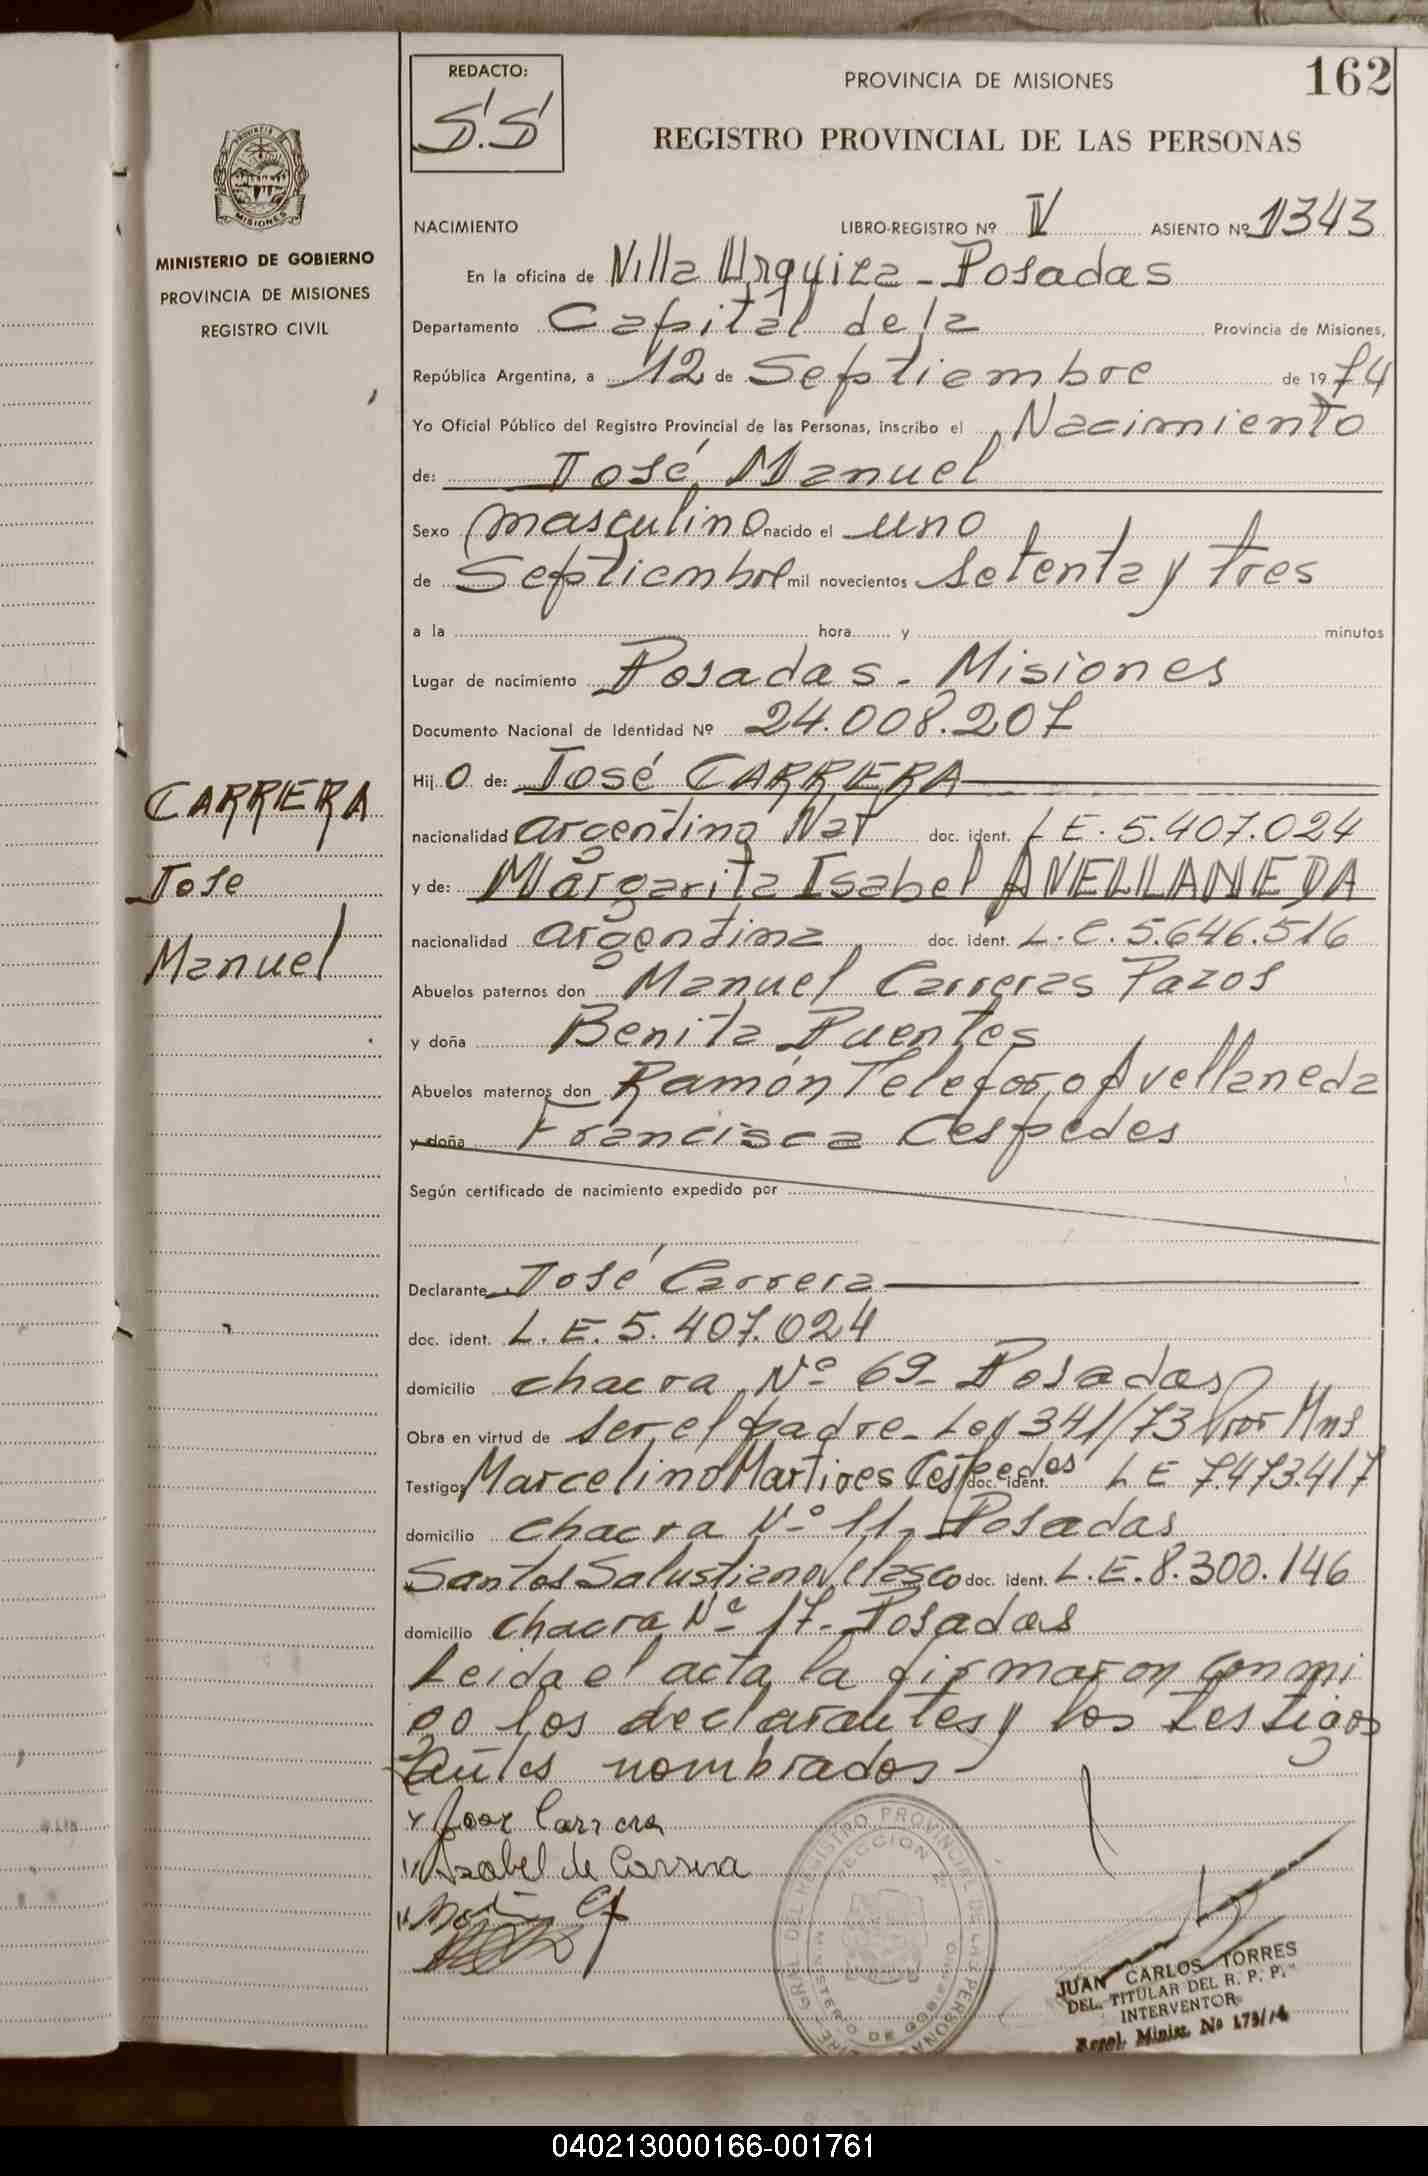 REDACTO:
S.S
PROVINCIA DE MISIONES
162
REGISTRO PROVINCIAL DE LAS PERSONAS
PROVINCIA DE
MISIONES
MINISTERIO DE GOBIERNO
PROVINCIA DE MISIONES
REGISTRO CIVIL
NACIMIENTO LIBRO-REGISTRO Nº IV ASIENTO Nº 1343
En la oficina de Villa Urquiza - Posadas
Departamento Capital de la Provincia de Misiones,
República Argentina, a 12 de Septiembre de 1974
Yo Oficial Público del Registro Provincial de las Personas, inscribo el Nacimiento
de: José Manuel
Sexo masculino nacido el uno
de Septiembre mil novecientos setenta y tres
a la hora y minutos
Lugar de nacimiento Posadas - Misiones
Documento Nacional de Identidad Nº 24.008.207
Hijo de: José CARRERA
CARRERA
nacionalidad argentino Nat doc. ident. L E. 5.407.024
Jose
y de: Margarita Isabel AVELLANEDA
nacionalidad argentina doc. ident. L.C. 5.646.516
Manuel
Abuelos paternos don Manuel Carreras Pazos
y doña Benita Puentes
Abuelos maternos don Ramón Telesforo Avellaneda
y doña Francisca Cespedes
Según certificado de nacimiento expedido por
Declarante José Carrera
doc. ident. L.E. 5.407.024
domicilio chacra Nº 69- Posadas
Obra en virtud de ser el padre- Ley 341/73 Pror Mns
Testigos Marcelino Martires Cespedes doc. ident. L E 7.473.417
domicilio chacra Nº 11- Posadas
Santos Salustiano Velasco doc. ident. L.E. 8.300.146
domicilio chacra Nº 17- Posadas
Leida el acta la firmaron conmi
go los declarantes y los testigos
antes nombrados-
Jose Carrera
Isabel de Carrera
REGISTRO PROVINCIAL DE LAS PERSONAS
SECCION
MINISTERIO DE GOBIERNO
JUAN CARLOS TORRES
DEL. TITULAR DEL R. P. P.
INTERVENTOR
Resol. Minist. Nº 173/74
040213000166-001761